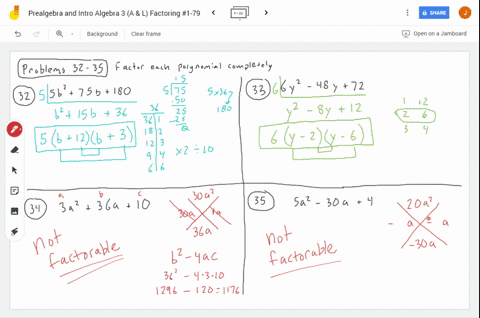 Prealgebra and Intro Algebra 3 (A & L) Factoring #1-79
SHARE
Background
Clear frame
Open on a Jamboard
Problems 32-35 Factor each polynomial completely
32 5 5b² + 75b + 180
b² + 15b + 36
5(b+12)(b+3)
15
5 75
50
25
25
0
5x36
180
36
36 1
18 2
12 3
9 4
6 6
x2 ÷10
33 6 6y² - 48y + 72
y² - 8y + 12
6(y-2)(y-6)
1 12
2 6
3 4
34 3a² + 36a + 10
a b c
not
factorable
30a²
30a
36a
b² - 4ac
36² - 4·3·10
1296 - 120 = 1176
35 5a² - 30a + 4
not
factorable
20a²
- a ± a
-30a